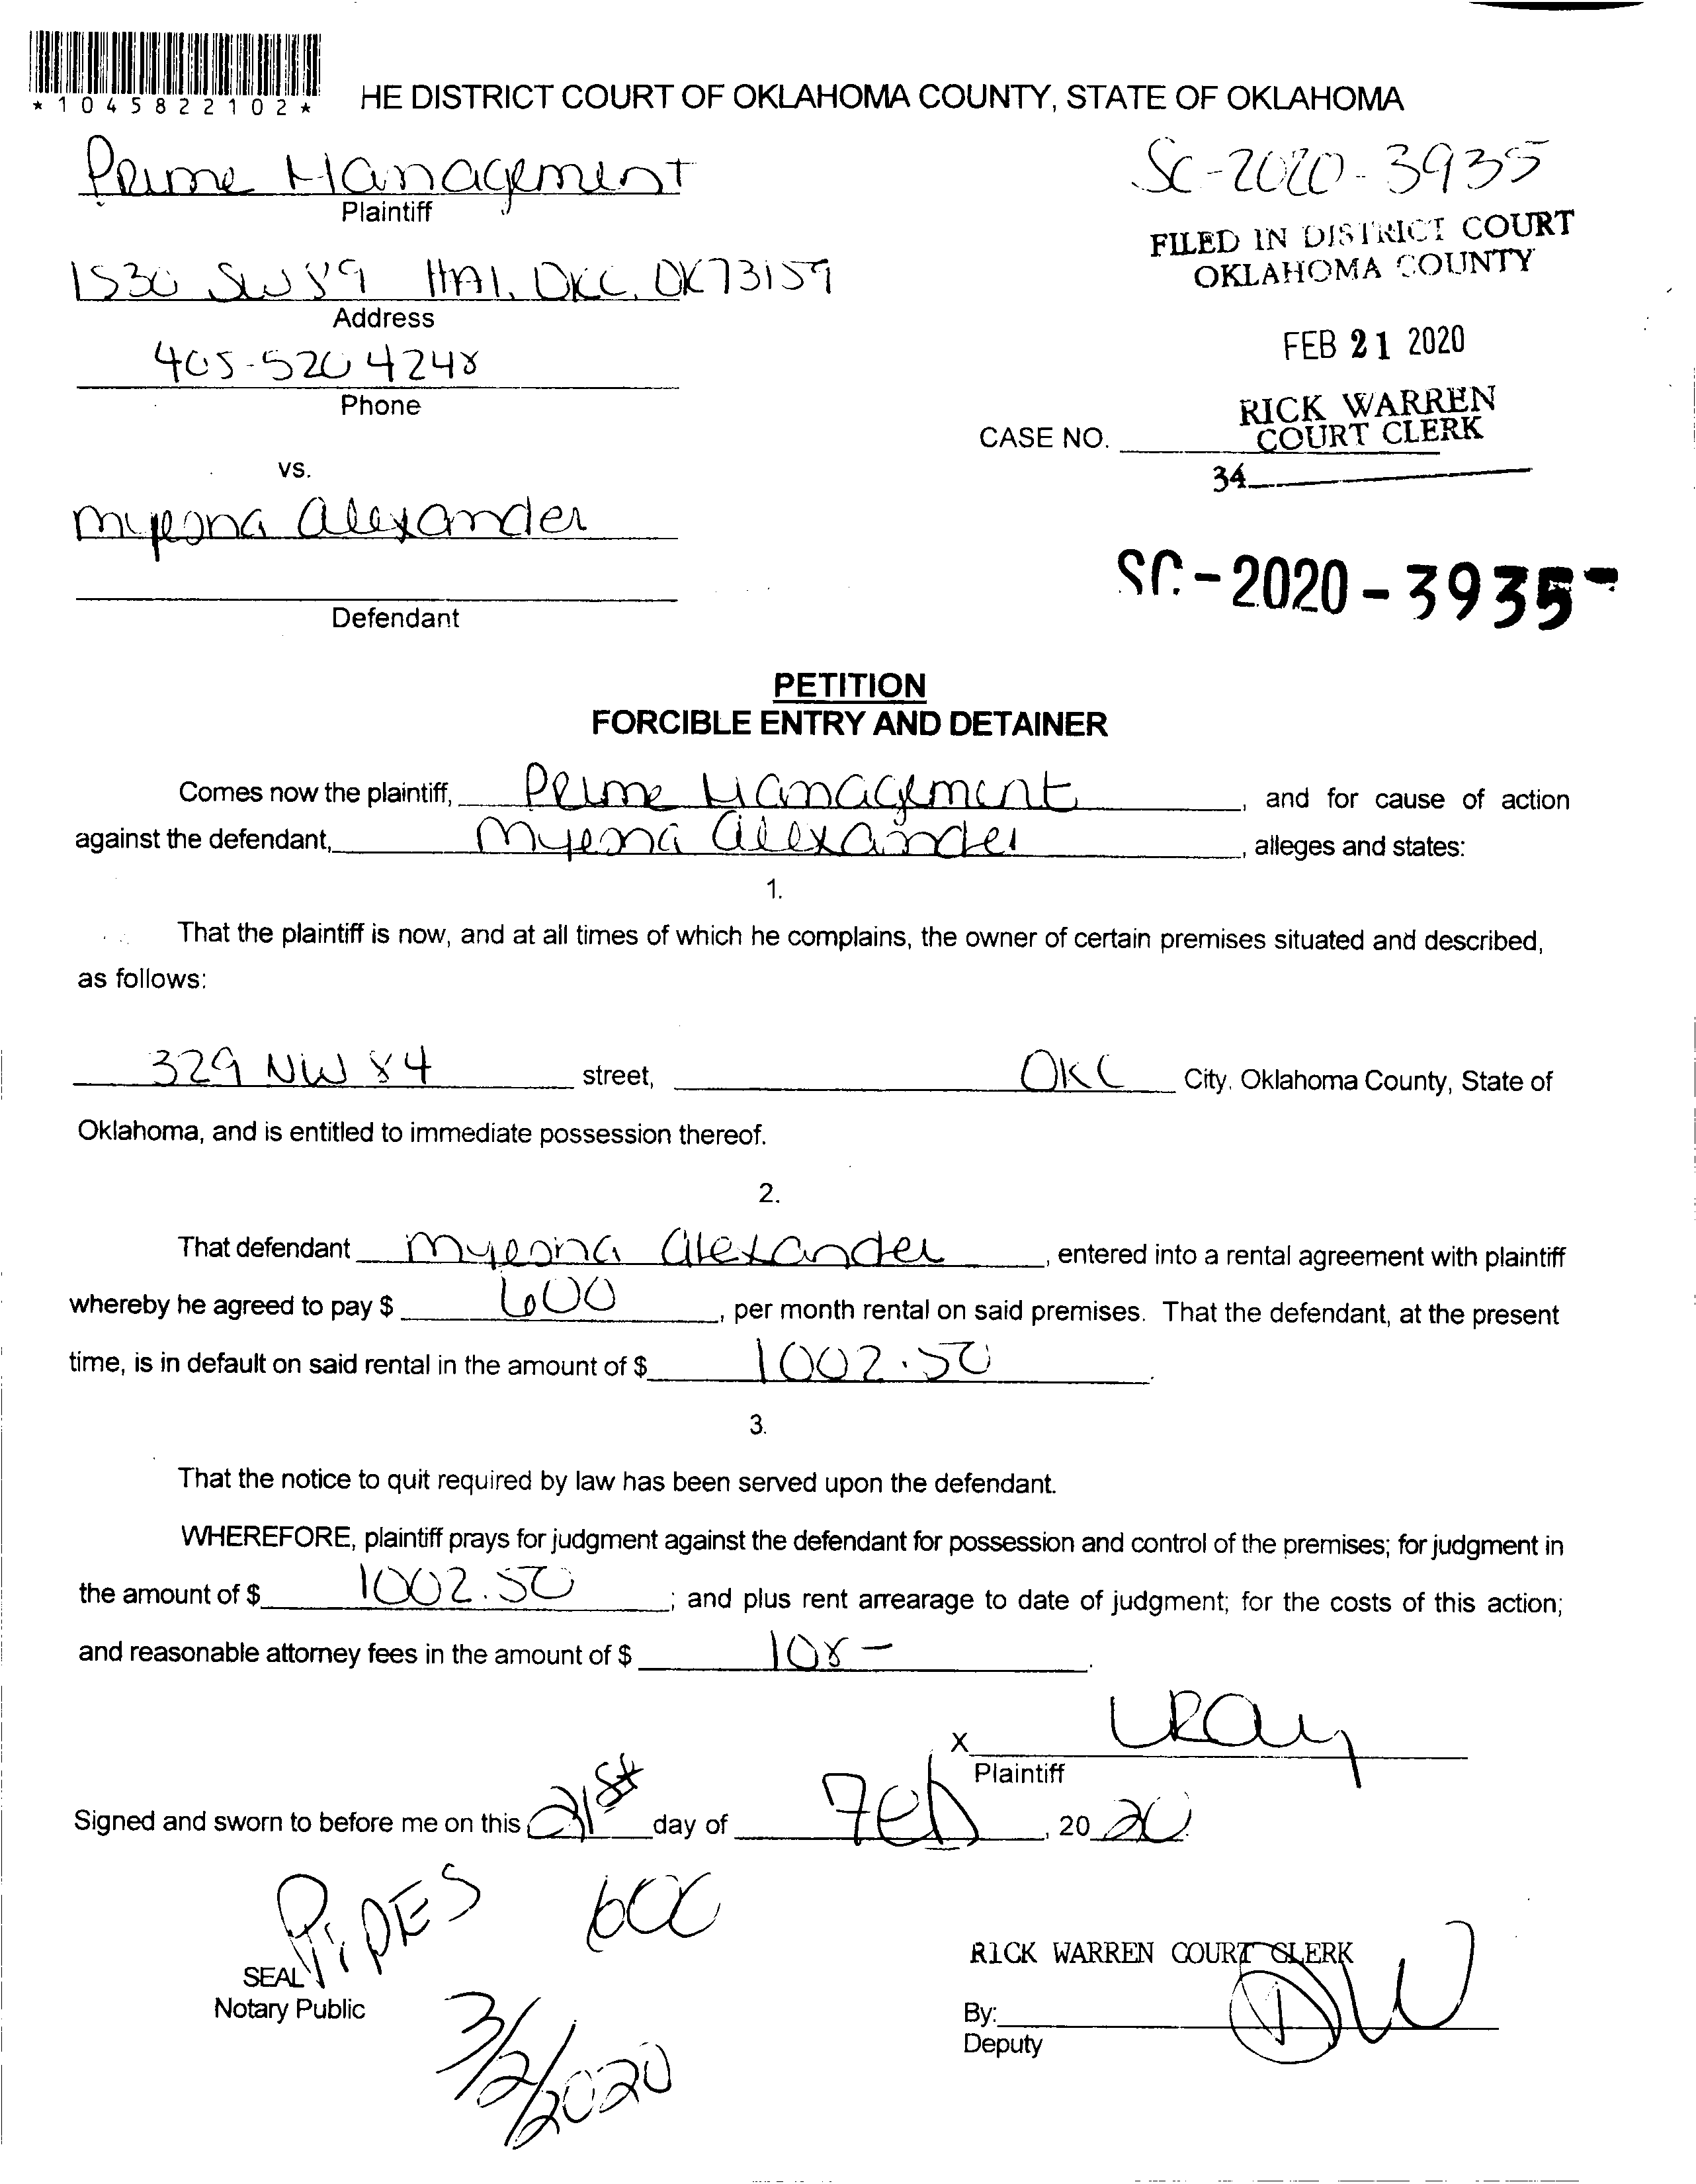 *1045822102*
HE DISTRICT COURT OF OKLAHOMA COUNTY, STATE OF OKLAHOMA
Prime Management
Plaintiff
SC-2020-3935
FILED IN DISTRICT COURT
OKLAHOMA COUNTY
1530 SW 89 OKC, OK 73159
Address
FEB 21 2020
405-520 4248
Phone
RICK WARREN
COURT CLERK
CASE NO.
34
vs.
Myeona Alexander
Defendant
SC-2020-3935
PETITION
FORCIBLE ENTRY AND DETAINER
Comes now the plaintiff, Prime Management, and for cause of action
against the defendant, Myeona Alexander, alleges and states:
1.
That the plaintiff is now, and at all times of which he complains, the owner of certain premises situated and described,
as follows:
329 NW 84 street, OKC City, Oklahoma County, State of
Oklahoma, and is entitled to immediate possession thereof.
2.
That defendant Myeona Alexander, entered into a rental agreement with plaintiff
whereby he agreed to pay $ 600, per month rental on said premises. That the defendant, at the present
time, is in default on said rental in the amount of $ 1002.50.
3.
That the notice to quit required by law has been served upon the defendant.
WHEREFORE, plaintiff prays for judgment against the defendant for possession and control of the premises; for judgment in
the amount of $ 1002.50; and plus rent arrearage to date of judgment; for the costs of this action;
and reasonable attorney fees in the amount of $ 108-.
X LRay
Plaintiff
Signed and sworn to before me on this 21st day of Feb, 2020
PiPES 600
RICK WARREN COURT CLERK
SEAL
Notary Public
By: DW
Deputy
3/2/2020